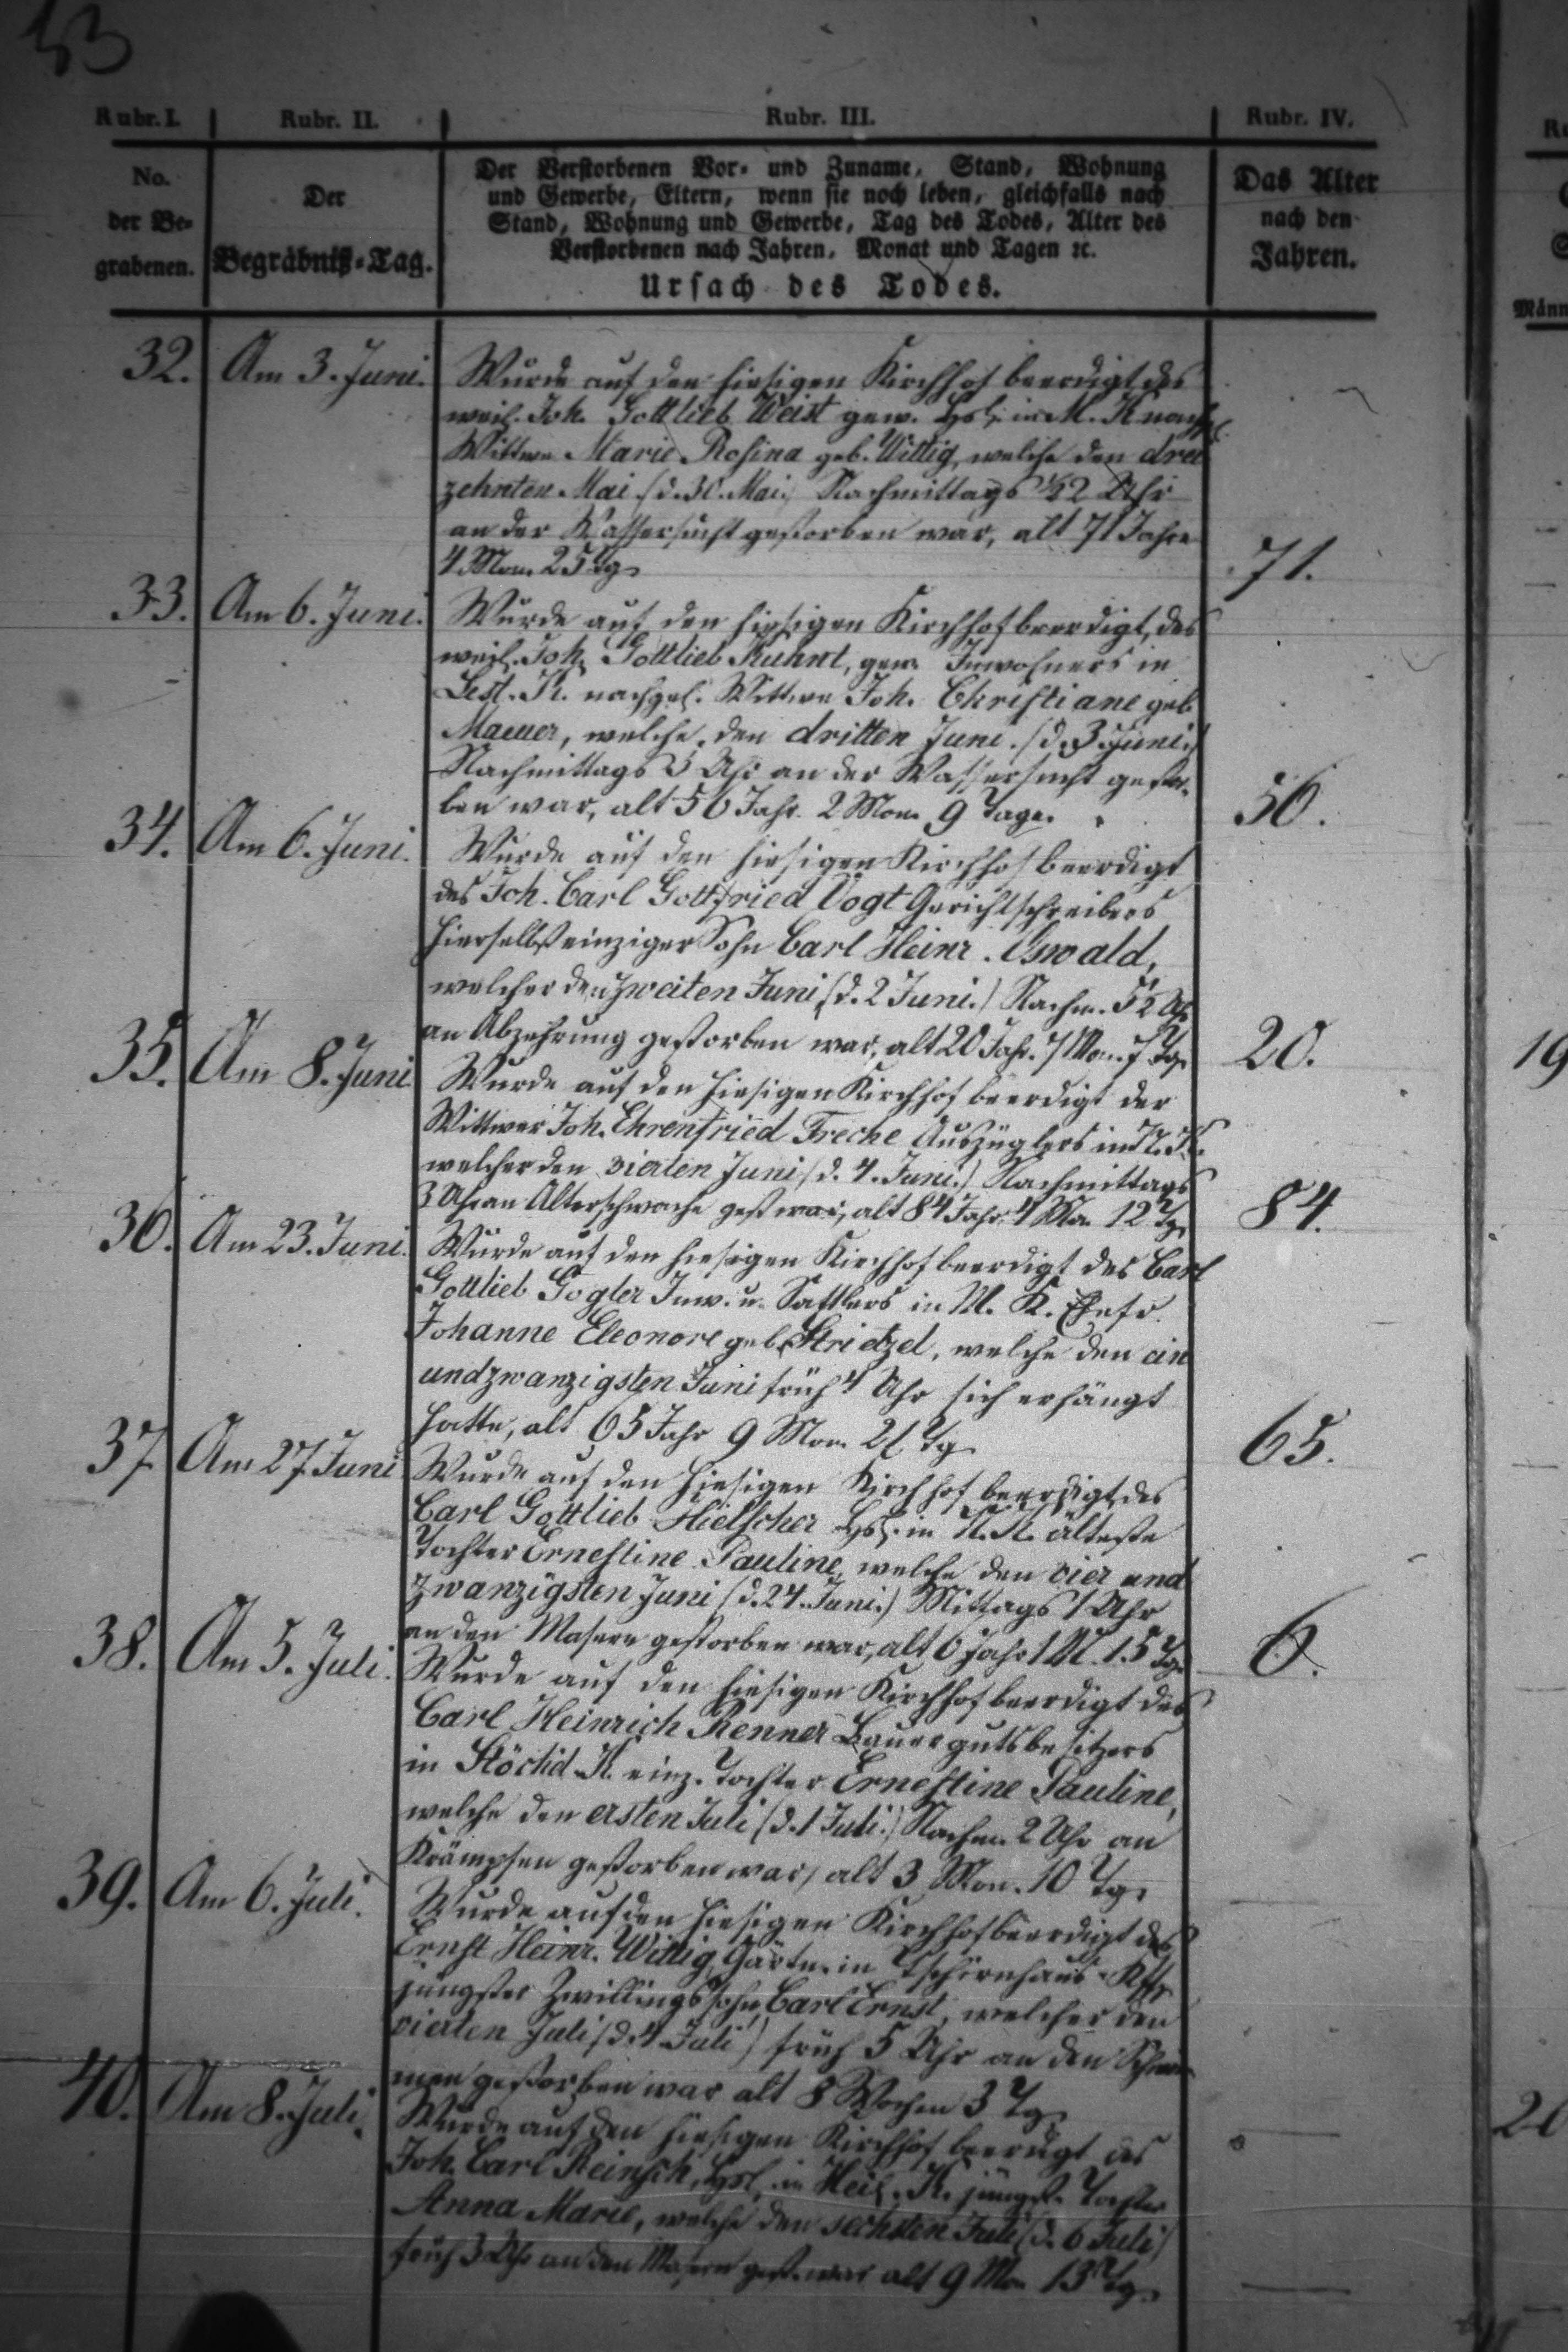 53
Rubr. I. Rubr. II. Rubr. III. Rubr. IV.
No.
der Be-
grabenen.
Der
Begräbniß-Tag.
Der Verstorbenen Vor- und Zuname, Stand, Wohnung
und Gewerbe, Eltern, wenn sie noch leben, gleichfalls nach
Stand, Wohnung und Gewerbe, Tag des Todes, Alter des
Verstorbenen nach Jahren, Monat und Tagen ꝛc.
Ursach des Todes.
Das Alter
nach den
Jahren.
Männ
32. Am 3. Juni. Wurde auf den hiesigen Kirchhof beerdigt des
weil. Joh. Gottlieb Weist gew. Hsl. in M. K. nachgel.
Wittwe Marie Rosina geb. Wittig, welche den drei
zehnten Mai (d. 30. Mai) Nachmittags 1/2 2 Uhr
an der Wassersucht gestorben war, alt 71 Jahre
4 Mon. 25 Tg. 71.
33. Am 6. Juni. Wurde auf den hiesigen Kirchhof beerdigt, des
weil. Joh. Gottlieb Kuhnt, gew. Inwohners in
Lest. K. nachgel. Wittwe Joh. Christiane geb.
welche den dritten Juni. (d. 3. Juni.)
Nachmittags 5 Uhr an der Wassersucht gestor-
ben war, alt 56 Jahr. 2 Mon. 9 Tage. 56.
34. Am 6. Juni. Wurde auf den hiesigen Kirchhof beerdigt
des Joh. Carl Gottfried Vogt Gerichtschreibers
hierselbst einziger Sohn Carl Heinr. Oswald,
welcher den zweiten Juni (d. 2 Juni.) Nachm.
an Abzehrung gestorben war, alt 20 Jahr. 7 Mon. 7 Tg. 20.
35. Am 8. Juni Wurde auf den hiesigen Kirchhof beerdigt der
Wittwer Joh. Ehrenfried Freche Auszüglers in N. K.
welcher den vierten Juni (d. 4. Juni.) Nachmittags
3 Uhr an Altersschwäche gest. war, alt 84 Jahr 4 Mon. 12 Tg. 84.
36. Am 23. Juni. Wurde auf den hiesigen Kirchhof beerdigt des Carl
Gottlieb Gogler Inw. u. Sattlers in M. K. Ehefr.
Johanne Eleonore geb. Strietzel, welche den ein
undzwanzigsten Juni früh 4 Uhr sich erhängt
hatte, alt 65 Jahr 9 Mon. 21 Tg. 65.
37. Am 27 Juni Wurde auf den hiesigen Kirchhof beerdigt, des
Carl Gottlieb Hielscher Hsl. in N. K. älteste
Tochter Ernestine Pauline, welche den vier und
zwanzigsten Juni (d. 24. Juni.) Mittags 1 Uhr
an den Masern gestorben war, alt 6 Jahr 1 M. 15 Tg. 6.
38. Am 5. Juli. Wurde auf den hiesigen Kirchhof beerdigt des
Carl Heinrich Renner Bauergutsbesitzers
in Stöckid. K. einz. Tochter Ernestine Pauline,
welche den ersten Juli (d. 1 Juli.) Nachm. 2 Uhr an
Krämpfen gestorben war, alt 3 Mon. 10 Tg.
39. Am 6. Juli. Wurde auf den hiesigen Kirchhof beerdigt des
Ernst Heinr. Wittig, Gärtn. in Tschirnhaus-Kffg.
jüngster Zwillingssohn, Carl Ernst, welcher den
vierten Juli (d. 4 Juli) früh 5 Uhr an den
gestorben war alt 8 Wochen 3 Tg.
40. Am 8. Juli. Wurde auf den hiesigen Kirchhof beerdigt des
Joh. Carl Reinsch, Hsl. in Heil. K. jüngst. Tochter
Anna Marie, welche den sechsten Juli (d. 6 Juli)
früh 3 Uhr an den Masern gest. war alt 9 Mon. 13 Tg.
19
20